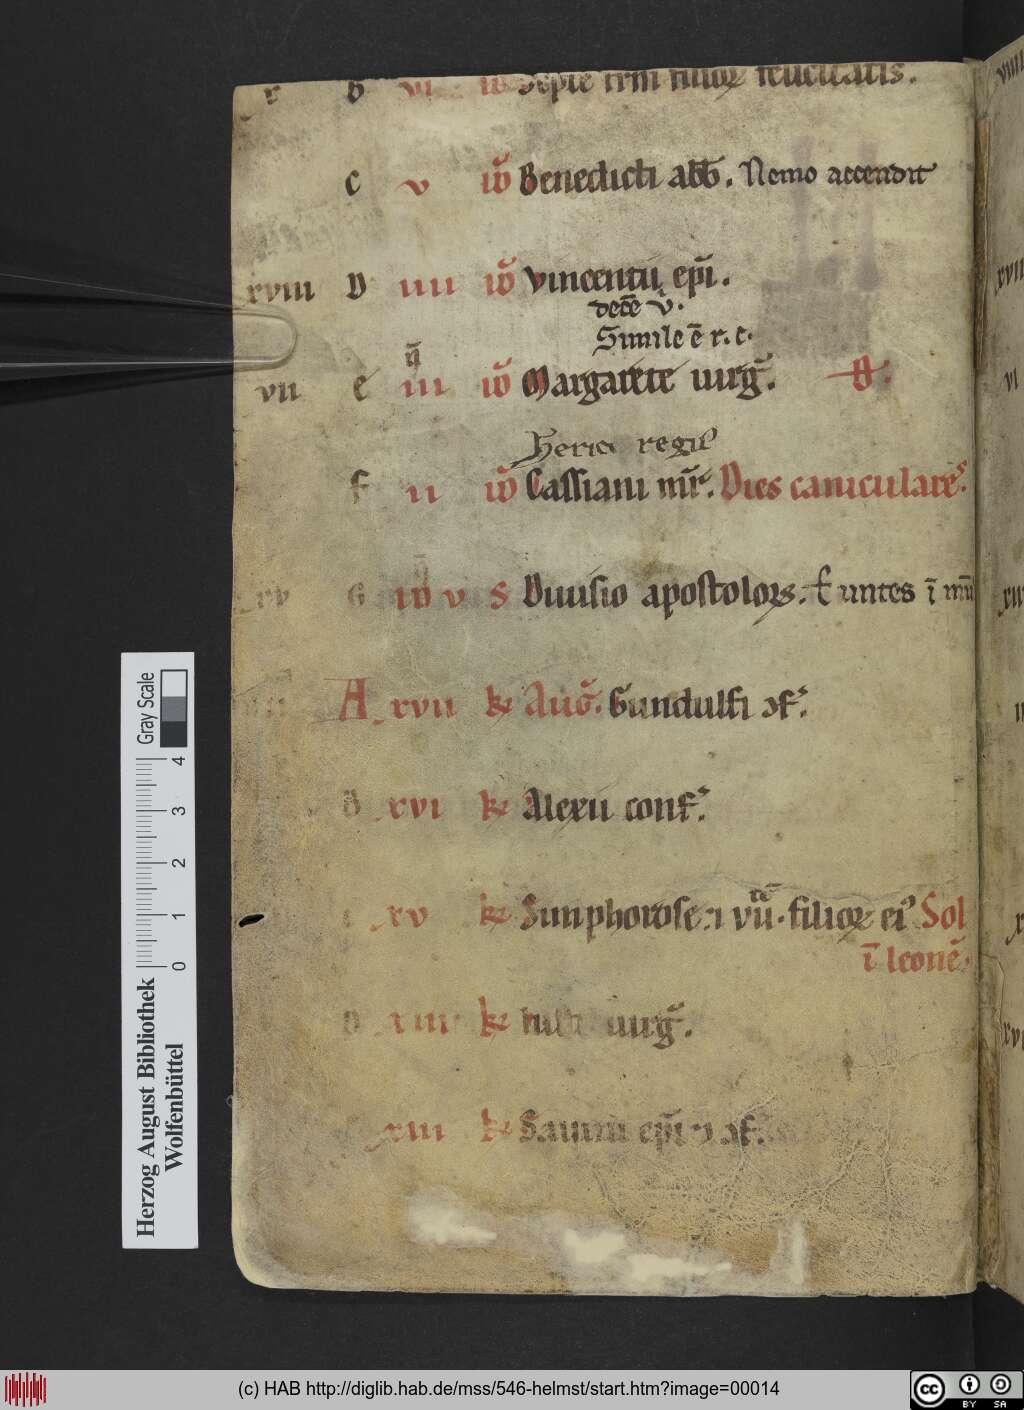 b vi iď Septē frm̄ filioꝝ felicitatis.
c v iď Benedicti abb̄. Nemo accendit
xviii D iiii iď Vincentii ep̄i.
decē v̄.
Simile ē r. e.
vii e iii iď Margarete uirḡ.
Herici regis
f ii iď Cassiani mr̄. Dies caniculares.
G iď v S Diuisio apostoloꝝ. Euntes ī mū
A xvii kł Aug̃. Gundulfi ɔf.
B xvi kł Alexii conf.
xv kł Simphorose ⁊ vii filioꝝ ei⁹ Sol
ī leonē.
D xiiii kł uirḡ.
xiii kł ep̄i ⁊ ɔf.
xviii
xvii
vi
Gray Scale
0 1 2 3 4
Herzog August Bibliothek
Wolfenbüttel
(c) HAB http://diglib.hab.de/mss/546-helmst/start.htm?image=00014
cc BY SA